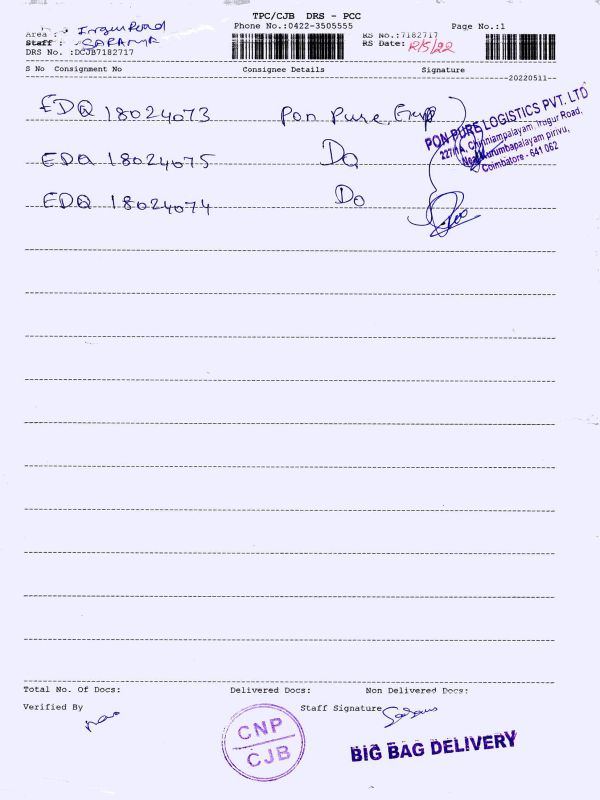 TPC/CJB DRS - PCC
Phone No.:0422-3505555
Page No.:1
Area : Irugur Road
Staff : SARANYA
DRS No. :DCJB7182717
RS No.:7182717
RS Date: 12/5/22
S No Consignment No Consignee Details Signature
20220511
EDQ 18024073 Pon Pure, Group
EDQ 18024075 Do
EDQ 18024074 Do
PON PURE LOGISTICS PVT. LTD
227/1A, Chinniampalayam, Irugur Road,
Near Kurumbapalayam pirivu,
Coimbatore - 641 062
Total No. Of Docs: Delivered Docs: Non Delivered Docs:
Verified By Staff Signature
CNP
CJB
BIG BAG DELIVERY